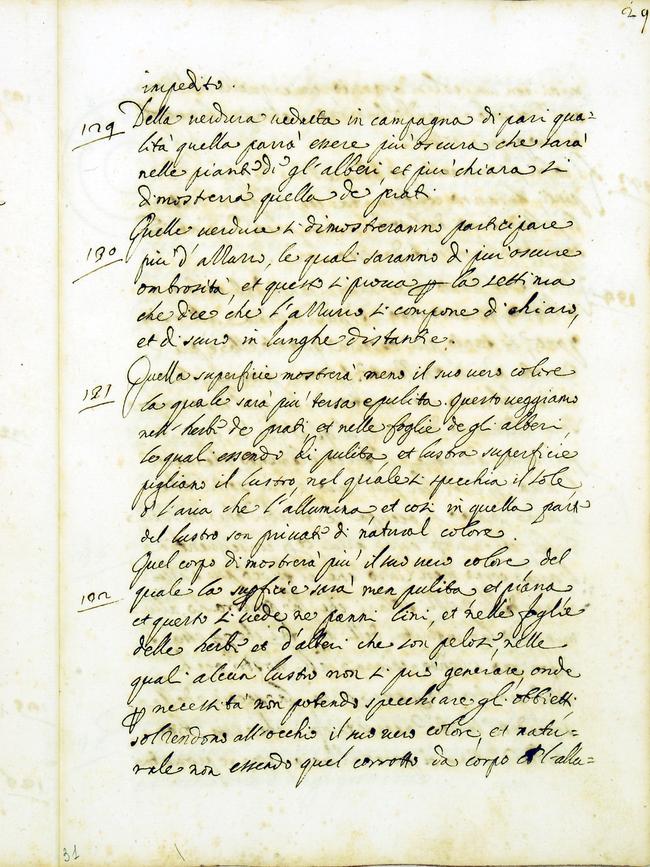 29
impedito.
129 Della verdura veduta in campagna di pari qua=
lità quella parrà essere più oscura che sarà
nelle piante di gl'alberi et più chiara si
dimosterrà quella de prati
Quelle verdure si dimosteranno participare
130 più d'azzurro, le quali saranno di più oscure
ombrosità, et questo si prova ꝑ la settima
che dice che l'azzurro si compone di chiaro,
et di scuro in lunghe distantie.
Quella superficie mostrerà meno il suo vero colore
131 la quale sarà più tersa e pulita. Questo veggiamo
nell'herbe de prati, et nelle foglie degli alberi
le quali essendo di pulita et lustra superficie
pigliano il lustro, nel quale si specchia il sole
o l'aria che l'allumina, et così in quella parte
del lustro son privati di natural colore.
Quel corpo dimostrerà più il suo vero colore del
132 quale la supficie sarà men pulita et piana
et questo si vede ne panni lini, et nelle foglie
delle herbe et d'alberi che son pelosi, nelle
quali alcun lustro non si può generare, onde
ꝑ necessità non potendo specchiare gl'obbietti
sol rendono all'occhio il suo vero colore, et natu=
rale non essendo quel corrotto da corpo ch l'allu=
31